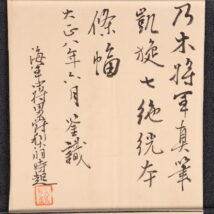 乃木将軍真筆
凱旋七絶絖本
條幅
大正八年六月 釜識
海軍少将男爵